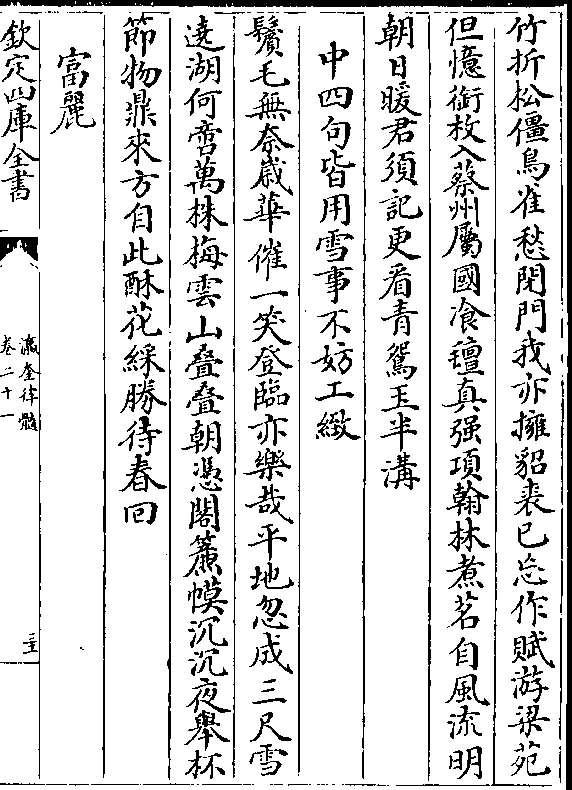 竹折松僵鳥雀愁閉門我亦擁貂裘已忘作賦游梁苑
但憶銜枚入蔡州屬國飡氊真强項翰林煮茗自風流明
朝日暖君須記更看青鴛玉半溝
中四句皆用雪事不妨工緻
鬢毛無奈嵗華催一笑登臨亦樂哉平地忽成三尺雪
遶湖何啻萬株梅雲山疊疊朝憑閣簾幙沉沉夜舉杯
節物鼎來方自此酥花綵勝待春回
富麗
欽定四庫全書
瀛奎律髓
卷二十一
三十